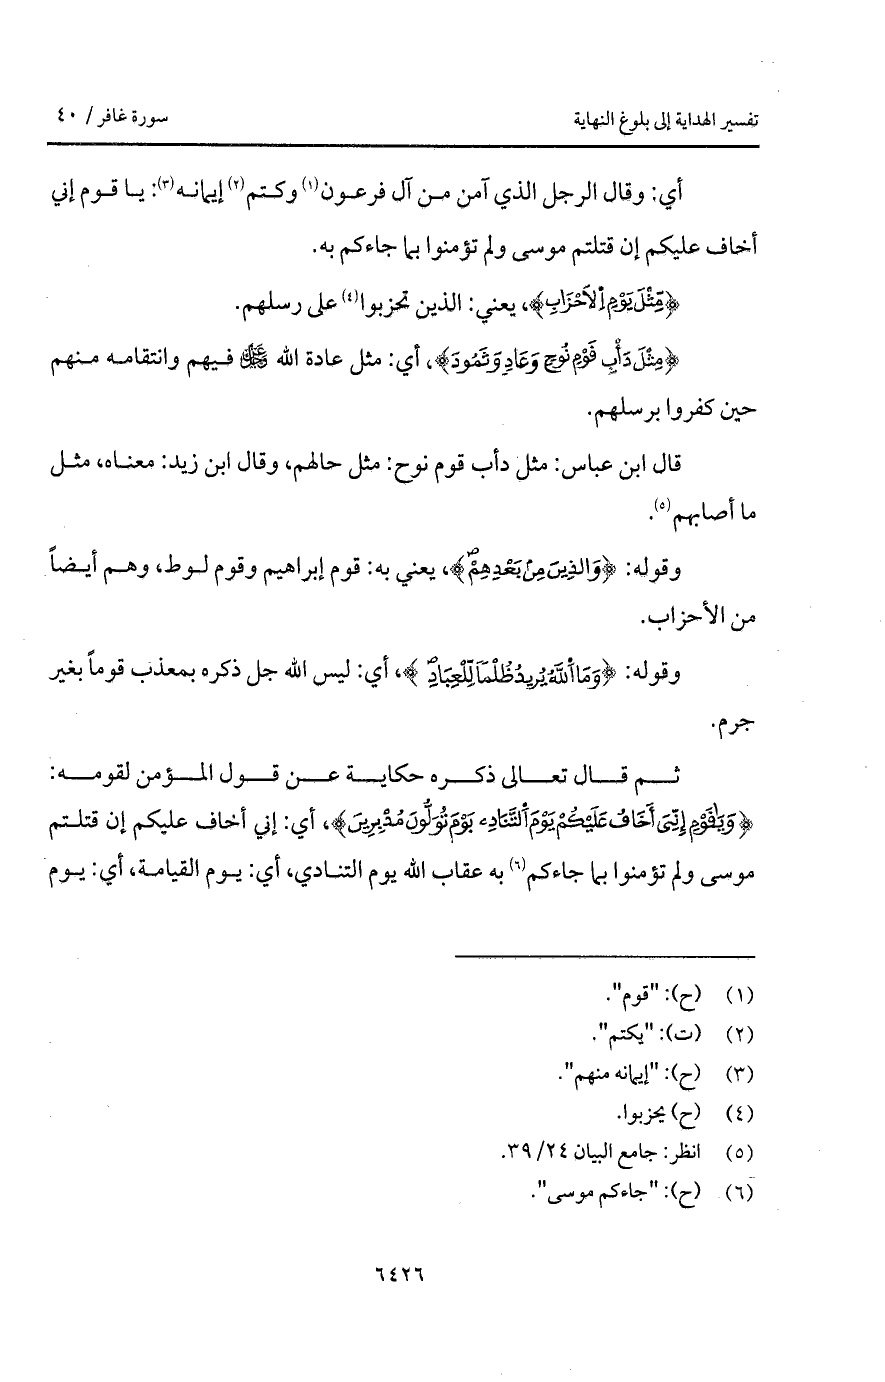 تفسير الهداية إلى بلوغ النهاية
سورة غافر / ٤٠
أي: وقال الرجل الذي آمن من آل فرعون(١) وكتم(٢) إيمانه(٣): يا قوم إني
أخاف عليكم إن قتلتم موسى ولم تؤمنوا بما جاءكم به.
﴿مِّثْلَ يَوْمِ اِ۬لَاحْزَابِ﴾، يعني: الذين تحزبوا(٤) على رسلهم.
﴿مِثْلَ دَأْبِ قَوْمِ نُوحٍ وَعَادٍ وَثَمُودَ﴾، أي: مثل عادة الله ﷻ فيهم وانتقامه منهم
حين كفروا برسلهم.
قال ابن عباس: مثل دأب قوم نوح: مثل حالهم، وقال ابن زيد: معناه، مثل
ما أصابهم(٥).
وقوله: ﴿وَالذِينَ مِنۢ بَعْدِهِمْ﴾، يعني به: قوم إبراهيم وقوم لوط، وهم أيضاً
من الأحزاب.
وقوله: ﴿وَمَا اَ۬للَّهُ يُرِيدُ ظُلْماً لِّلْعِبَادِ﴾، أي: ليس الله جل ذكره بمعذب قوماً بغير
جرم.
ثم قال تعالى ذكره حكاية عن قول المؤمن لقومه:
﴿وَيَٰقَوْمِ إِنِّيَ أَخَافُ عَلَيْكُمْ يَوْمَ اَ۬لتَّنَادِۦ يَوْمَ تُوَلُّونَ مُدْبِرِينَ﴾، أي: إني أخاف عليكم إن قتلتم
موسى ولم تؤمنوا بما جاءكم(٦) به عقاب الله يوم التنادي، أي: يوم القيامة، أي: يوم
(١) (ح): "قوم".
(٢) (ت): "يكتم".
(٣) (ح): "إيمانه منهم".
(٤) (ح) يحزبوا.
(٥) انظر: جامع البيان ٢٤/ ٣٩.
(٦) (ح): "جاءكم موسى".
٦٤٢٦